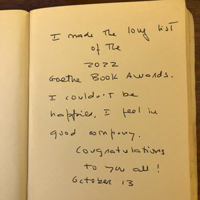 I made the long list
of the
2022
Goethe Book Awards.
I couldn't be
happier, I feel in
good company.
Congratulations
to you all!
October 13